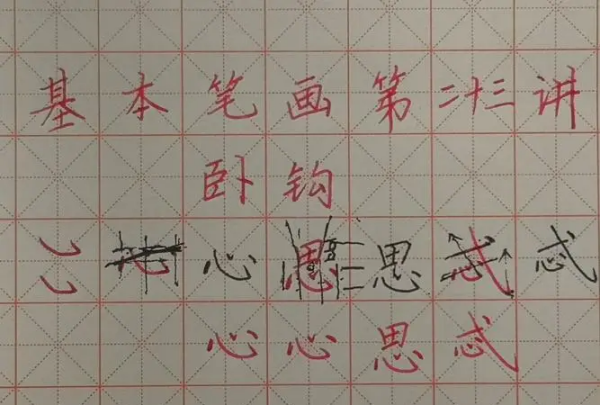 基本笔画第二十三讲
卧钩
心心思思忒忒
心心思忒